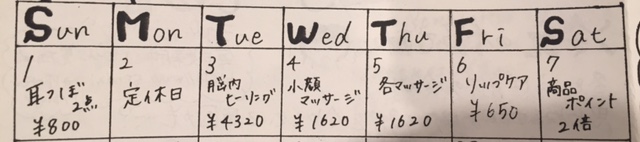 Sun Mon Tue Wed Thu Fri Sat
1
耳つぼ
2点
¥800
2
定休日
3
脳内
ヒーリング
¥4320
4
小顔
マッサージ
¥1620
5
各マッサージ
¥1620
6
リップケア
¥650
7
商品
ポイント
2倍